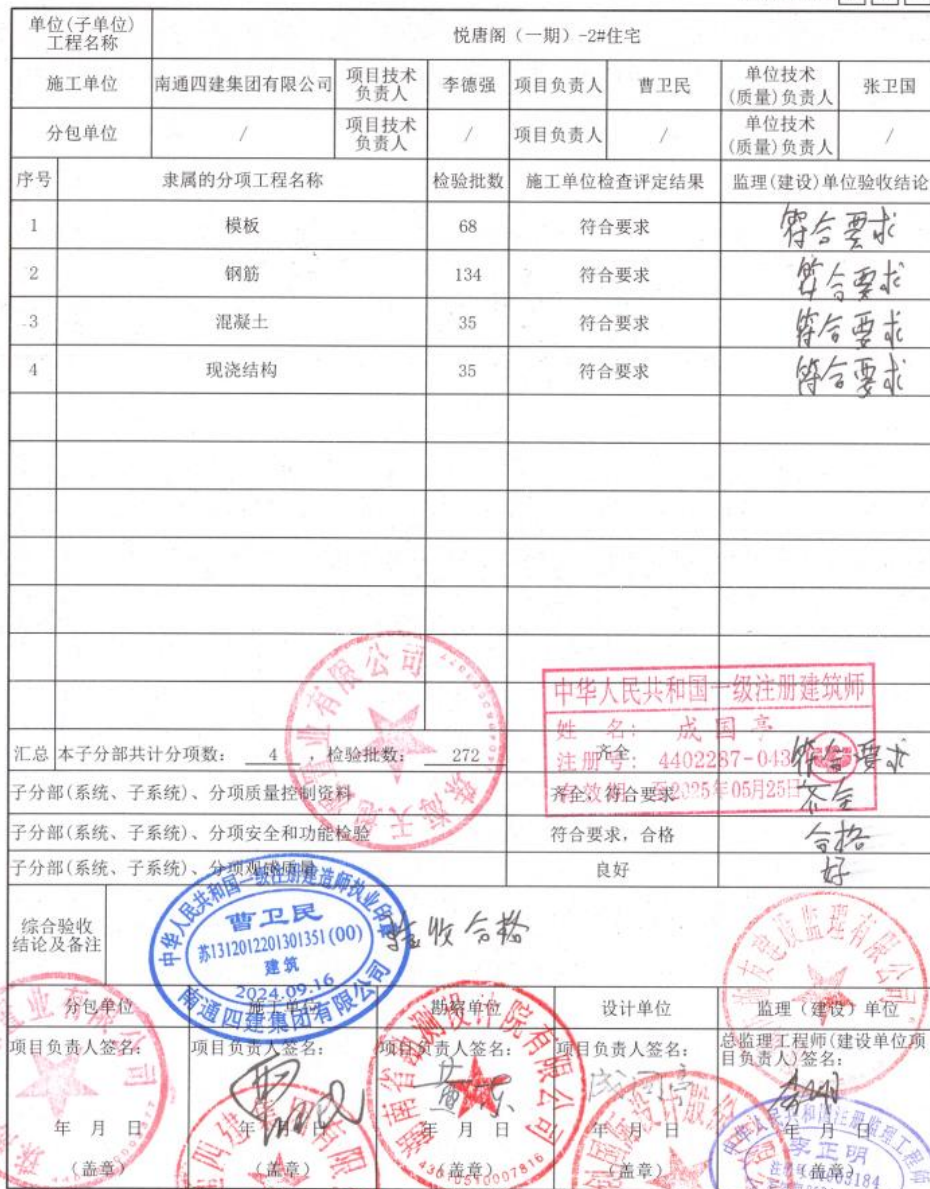 单位(子单位)工程名称 悦唐阁（一期）-2#住宅
施工单位 南通四建集团有限公司 项目技术负责人 李德强 项目负责人 曹卫民 单位技术(质量)负责人 张卫国
分包单位 / 项目技术负责人 / 项目负责人 / 单位技术(质量)负责人 /
序号 隶属的分项工程名称 检验批数 施工单位检查评定结果 监理(建设)单位验收结论
1 模板 68 符合要求 符合要求
2 钢筋 134 符合要求 符合要求
3 混凝土 35 符合要求 符合要求
4 现浇结构 35 符合要求 符合要求
中华人民共和国一级注册建筑师
姓 名： 成国亭
注册号： 4402287-043
有效期 至2025年05月25日
汇总 本子分部共计分项数： 4 ，检验批数： 272 齐全 符合要求
子分部(系统、子系统)、分项质量控制资料 齐全，符合要求 齐全
子分部(系统、子系统)、分项安全和功能检验 符合要求，合格 合格
子分部(系统、子系统)、分项观感质量 良好 好
综合验收结论及备注 验收合格
中华人民共和国一级注册建造师执业印章
曹卫民
苏1312012201301351(00)
建筑
2024.09.16
南通四建集团有限公司
分包单位 施工单位 勘察单位 设计单位 监理（建设）单位
项目负责人签名： 项目负责人签名： 项目负责人签名： 项目负责人签名： 总监理工程师(建设单位项目负责人)签名：
成国亭
年 月 日 年 月 日 年 月 日 年 月 日 年 月 日
（盖章） （盖章） （盖章） （盖章） （盖章）
李正明